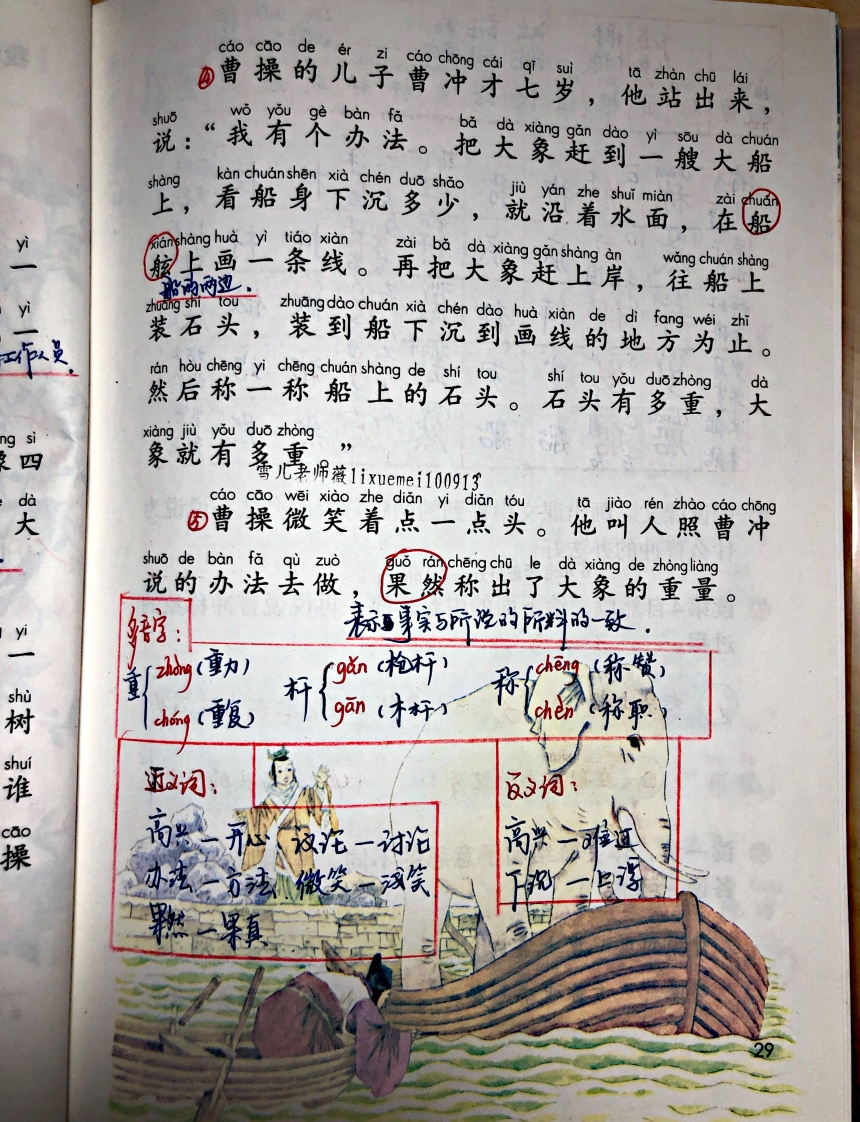 yì
一
yì
一
工作人员.
ng sì
象四
è dà
大
yi
一
shù
树
shuí
谁
cāo
操
cáo cāo de ér zi cáo chōng cái qī suì tā zhàn chū lái
④曹操的儿子曹冲才七岁，他站出来，
shuō wǒ yǒu gè bàn fǎ bǎ dà xiàng gǎn dào yì sōu dà chuán
说：“我有个办法。把大象赶到一艘大船
shàng kàn chuán shēn xià chén duō shǎo jiù yán zhe shuǐ miàn zài chuán
上，看船身下沉多少，就沿着水面，在船
xián shàng huà yì tiáo xiàn zài bǎ dà xiàng gǎn shàng àn wǎng chuán shàng
舷上画一条线。再把大象赶上岸，往船上
船的两边.
zhuāng shí tou zhuāng dào chuán xià chén dào huà xiàn de dì fang wéi zhǐ
装石头，装到船下沉到画线的地方为止。
rán hòu chēng yi chēng chuán shàng de shí tou shí tou yǒu duō zhòng dà
然后称一称船上的石头。石头有多重，大
xiàng jiù yǒu duō zhòng
象就有多重。”
雪儿老师薇lixuemei100913
cáo cāo wēi xiào zhe diǎn yi diǎn tóu tā jiào rén zhào cáo chōng
⑤曹操微笑着点一点头。他叫人照曹冲
shuō de bàn fǎ qù zuò guǒ rán chēng chū le dà xiàng de zhòng liàng
说的办法去做，果然称出了大象的重量。
表示事实与所说的所料的一致.
多音字：
重 zhòng (重力) chóng (重复)
杆 gǎn (枪杆) gān (木杆)
称 chēng (称赞) chèn (称职)
近义词：
高兴—开心 议论—讨论
办法—方法 微笑—浅笑
果然—果真
反义词：
高兴—难过
下沉—上浮
29